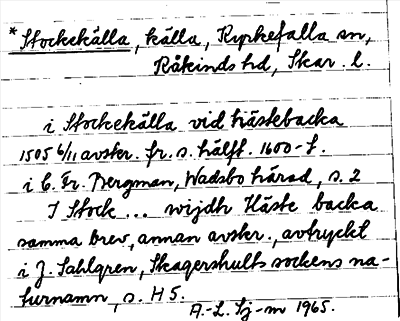 * Stockekälla, källa, Kyrkefalla sn,
Kåkinds hd, Skar. l.
i Stockekälla vid hästebacka
1505 6/11 avskr. fr. s. hälft. 1600-t.
i C. Fr. Bergman, Wadsbo härad, s. 2
I Stock... wijdh Häste backa
samma brev, annan avskr., avtryckt
i J. Sahlgren, Skagershults sockens na-
turnamn, s. H5.
A.-L. Sj-m 1965.